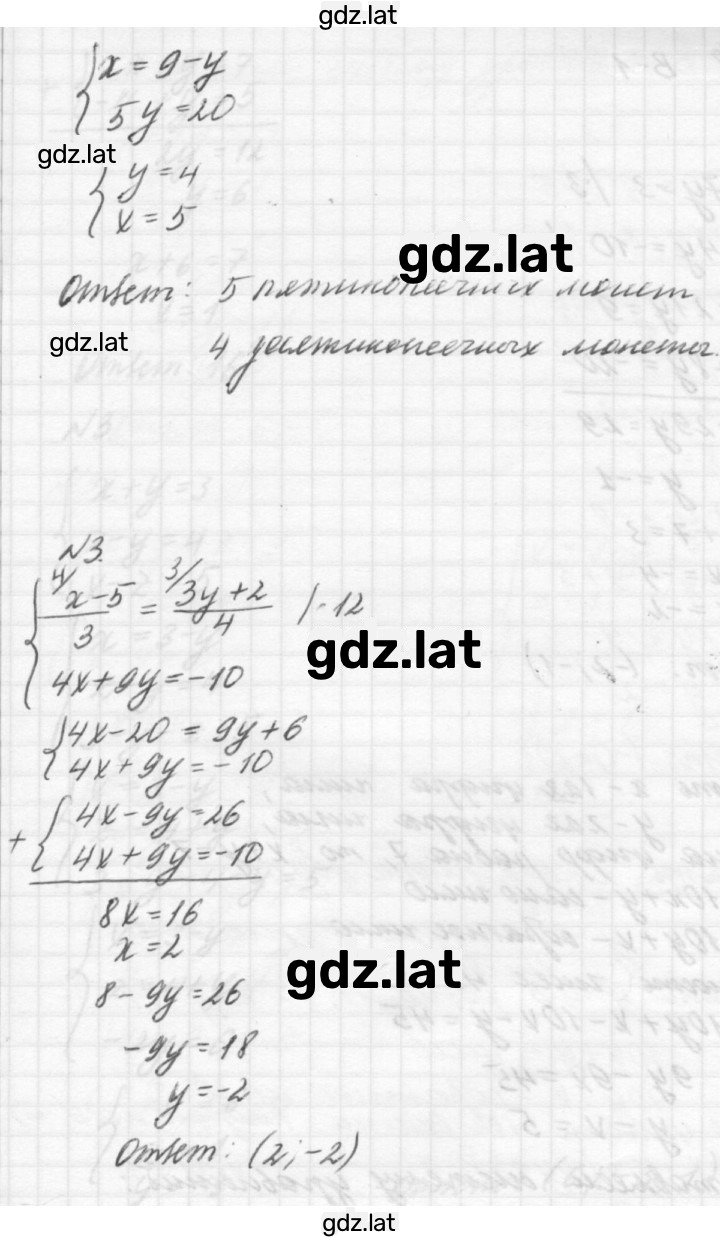 gdz.lat
x = 9-y
5y = 20
gdz.lat
y = 4
x = 5
gdz.lat
Ответ: 5 пятикопеечных монет
gdz.lat
4 десятикопеечных монеты.
№3.
4/ x-5 / 3 = 3/ 3y+2 / 4 | · 12
gdz.lat
4x+9y=-10
4x-20 = 9y+6
4x+9y=-10
4x-9y=26
+
4x+9y=-10
8x=16
x=2
gdz.lat
8-9y=26
-9y=18
y=-2
Ответ: (2;-2)
gdz.lat